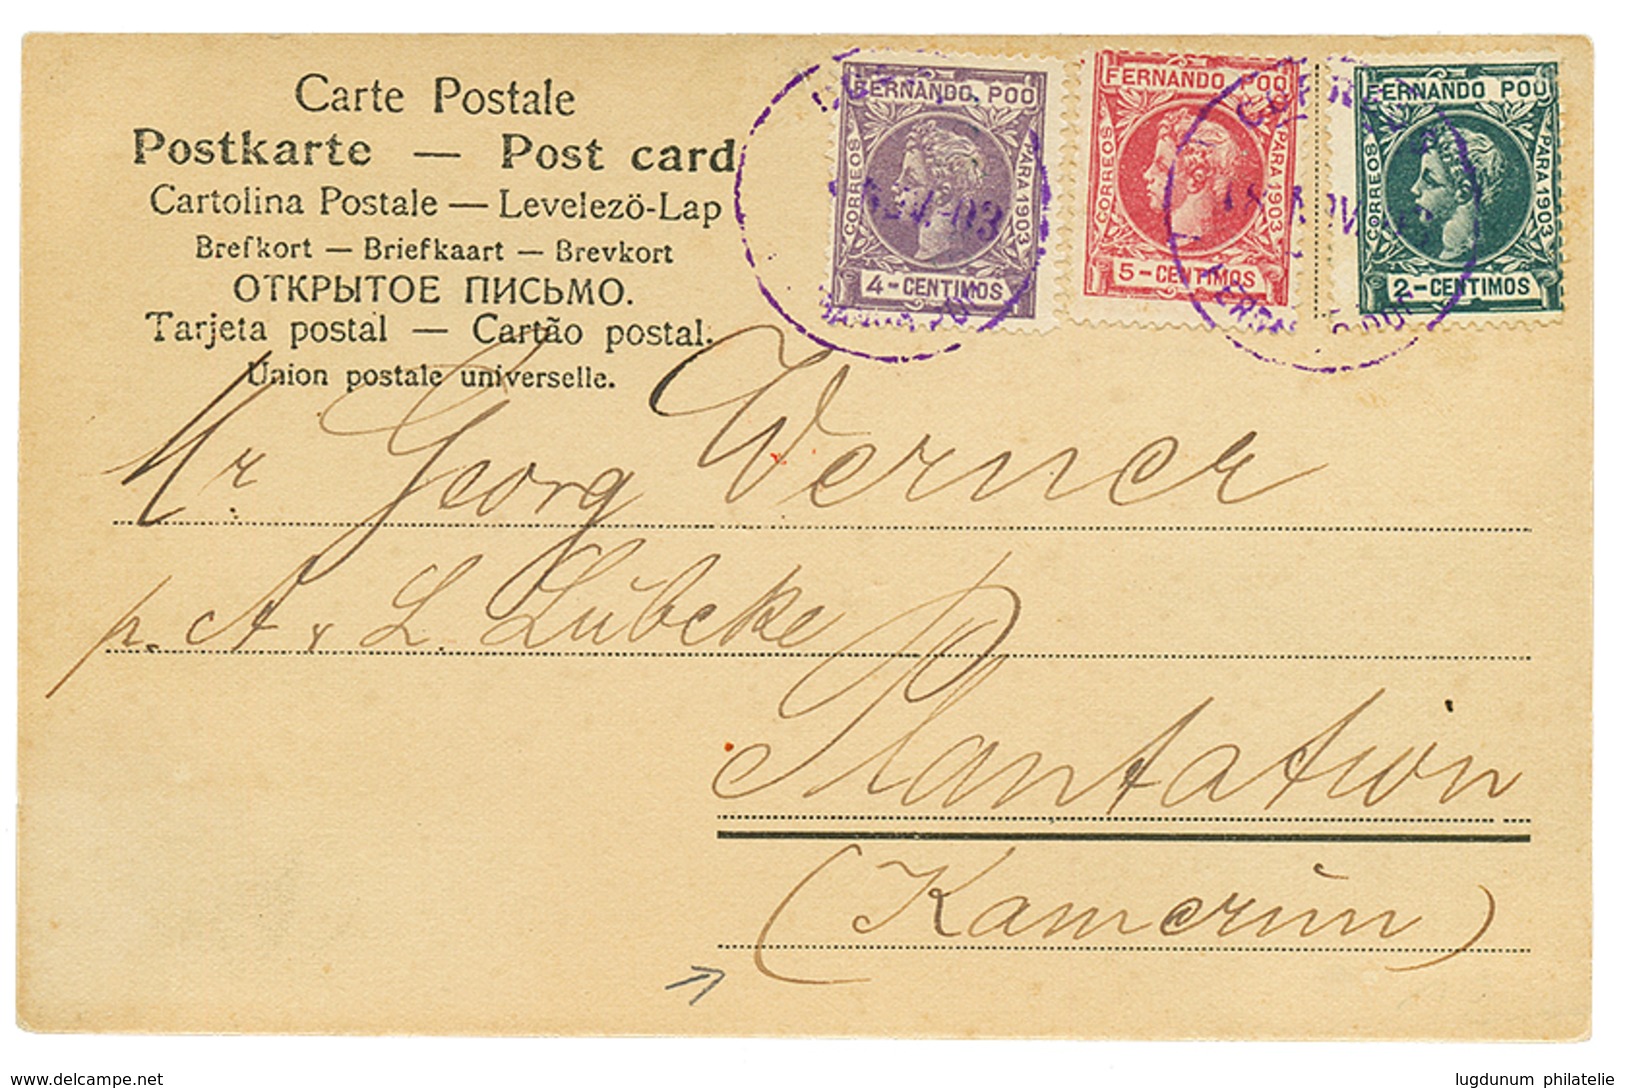 Carte Postale
Postkarte — Post card
Cartolina Postale — Levelezö-Lap
Brefkort — Briefkaart — Brevkort
ОТКРЫТОЕ ПИСЬМО.
Tarjeta postal — Cartão postal.
Union postale universelle.
FERNANDO POO
CORREOS
PARA 1903
4-CENTIMOS
FERNANDO POO
CORREOS
PARA 1903
5-CENTIMOS
FERNANDO POO
CORREOS
PARA 1903
2-CENTIMOS
Mr. Georg Werner
p. A. & L. Lübcke
Plantation
(Kamerun)
www.delcampe.net
lugdunum philatelie